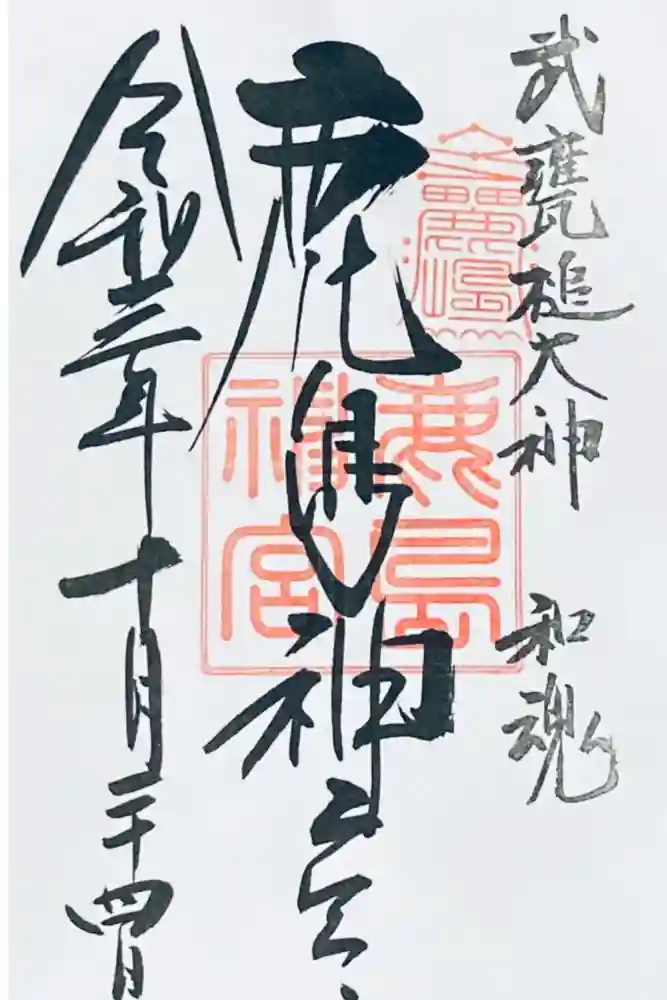 武甕槌大神 和魂
鹿嶋
鹿島神宮
鹿島神宮
令和三年十月二十四日